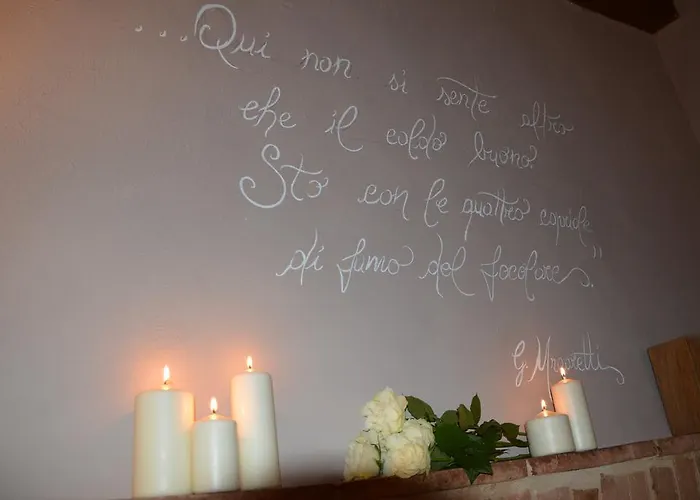 ...Qui non si sente altro
che il caldo buono.
Sto con le quattro capriole
di fumo del focolare."
G. Ungaretti